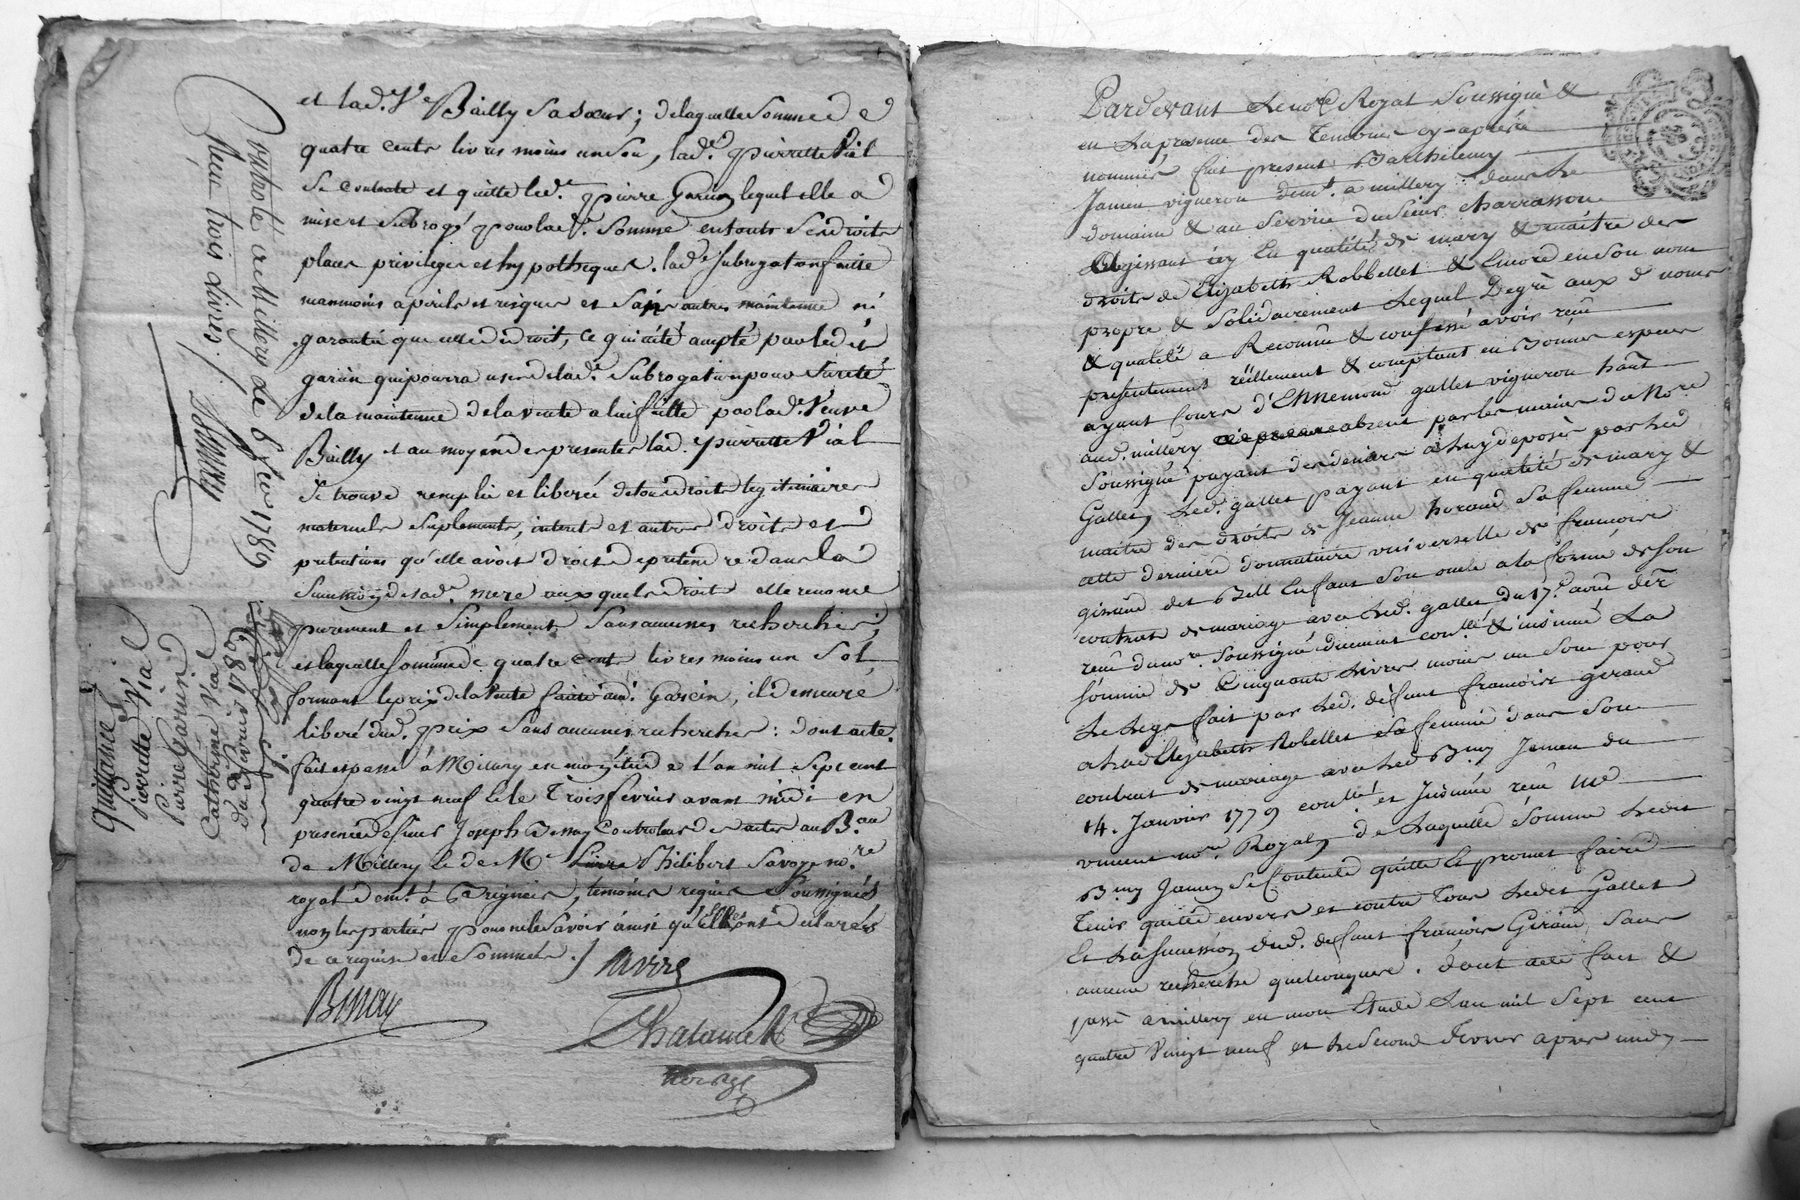 et lad. Ve Bailly sa sœur; de laquelle somme de
quatre cents livres moins un sou, lade. pierrette Vial
se contente et quitte led. pierre Garin lequel elle a
mis et subrogé pour lad. somme en touts ses droits
places privileges et hypotheques. lade subrogation faite
neanmoins a perils et risques et sans autre maintenue ni
garantie que de droit, ce qui a été accepté par led
garin qui poura user de lad. subrogation pour sureté
de la maintenue de la vente a lui faitte par lad. Veuve
Bailly et au moyen des presentes lad. pierrette Vial
se trouve remplie et liberée de tous droits legitimaires
maternels suplements, interets et autres droits et
pretentions qu'elle avoit droit de pretendre dans la
succession de sad. mere auxquels droit elle renonce
purement et simplement sans aucunes recherches,
et laquelle somme de quatre cent livres moins un sol
formant le prix de la vente faite aud. Garin, il demeure
liberé dud. prix sans aucunes recherches: dont acte.
fait et passé à Millery en mon étude l'an mil sept cent
quatre vingt neuf le trois fevrier avant midi en
presence de sieur Joseph Controleur des actes au Bau
de Millery et de Me Philibert Savoye nore
royal demt. à Brignais, temoins requis soussignés
non les parties pour ne le savoir ainsi qu'elles ont declaré
de ce requise et sommées. /
Controlé à Millery le 6 fevr 1789
Reçu trois livres /
Quittance
pierrette Vial
Pierre Garin
Catherine Vial
du 3 fevrier 1789
Pardevant le nore Royal soussigné &
en la presence des temoins cy-après
nommés fut present Barthelemy
Jamen vigneron demt. a millery dans le
domaine & au service du sieur charrasson
agissant icy en qualité de mary & maitre des
droits de Elizabeth Robbellet & encore en son nom
propre & solidairement lequel de gré aux d. noms
& qualité a reconnu & confessé avoir reçu
presentement réellement & comptant en bonnes especes
ayant cours d'Ennemond gallet vigneron habt
aud. millery absent par les mains du Nore
soussigné payant des deniers a luy deposés par led
Gallet, led. gallet payant en qualité de mary &
maitre des droits de Jeanne sa femme
cette derniere donnataire universelle de francois
giraud dit Bell Enfant son oncle a la forme de son
contrat de mariage avec led. gallet du 17e. avril der
reçu du nore. soussigné duement conllé & insinué la
somme de Cinquante livres moins un sou pour
le legs fait par led. defunt francois geraud
a lad Elizabeth Robellet sa femme dans son
contrat de mariage avec led Bmy Jamen du
14. Janvier 1779 conllé et Insinué reçu Me
vincent nore. Royal, de laquelle somme ledit
Bmy Jamen se contente quitte & promet faire
tenir quitte envers et contre tous ledit Gallet
et la succession dud. defunt francois Giraud, sans
aucune recherche quelconques. dont acte fait &
passé a millery en mon Etude l'an mil sept cent
quatre vingt neuf et le second fevrier après midy